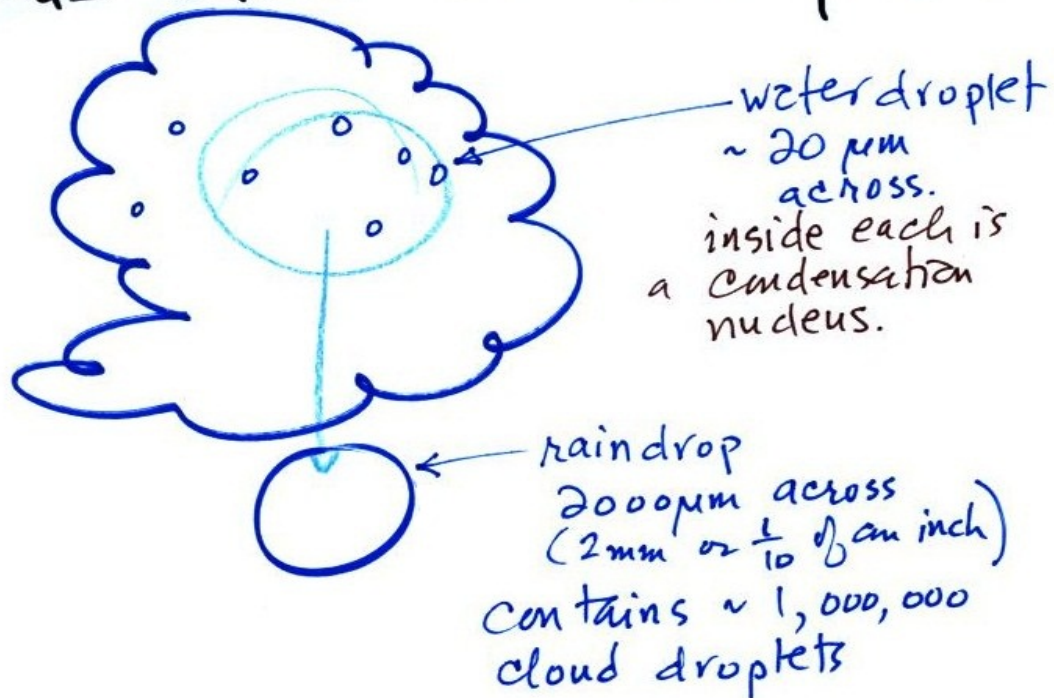 water droplet
~ 20 µm
across.
inside each is
a condensation
nucleus.
raindrop
2000µm across
(2mm or 1/10 of an inch)
contains ~ 1,000,000
cloud droplets